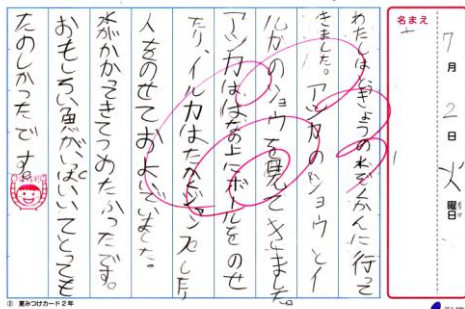 名まえ
7月2日火曜日
わたしは、とうきょうの水ぞくかんに行って
きました。アシカのショウとイ
ルカのショウを見てきました。
アシカは、はなの上にボールをのせ
たり、イルカはたかくジャンプしたり
人をのせておよいでいました。
水がかかってきてつめたかったです。
おもしろい魚がいっぱいいてとっても
たのしかったです。
② 夏みつけカード2年